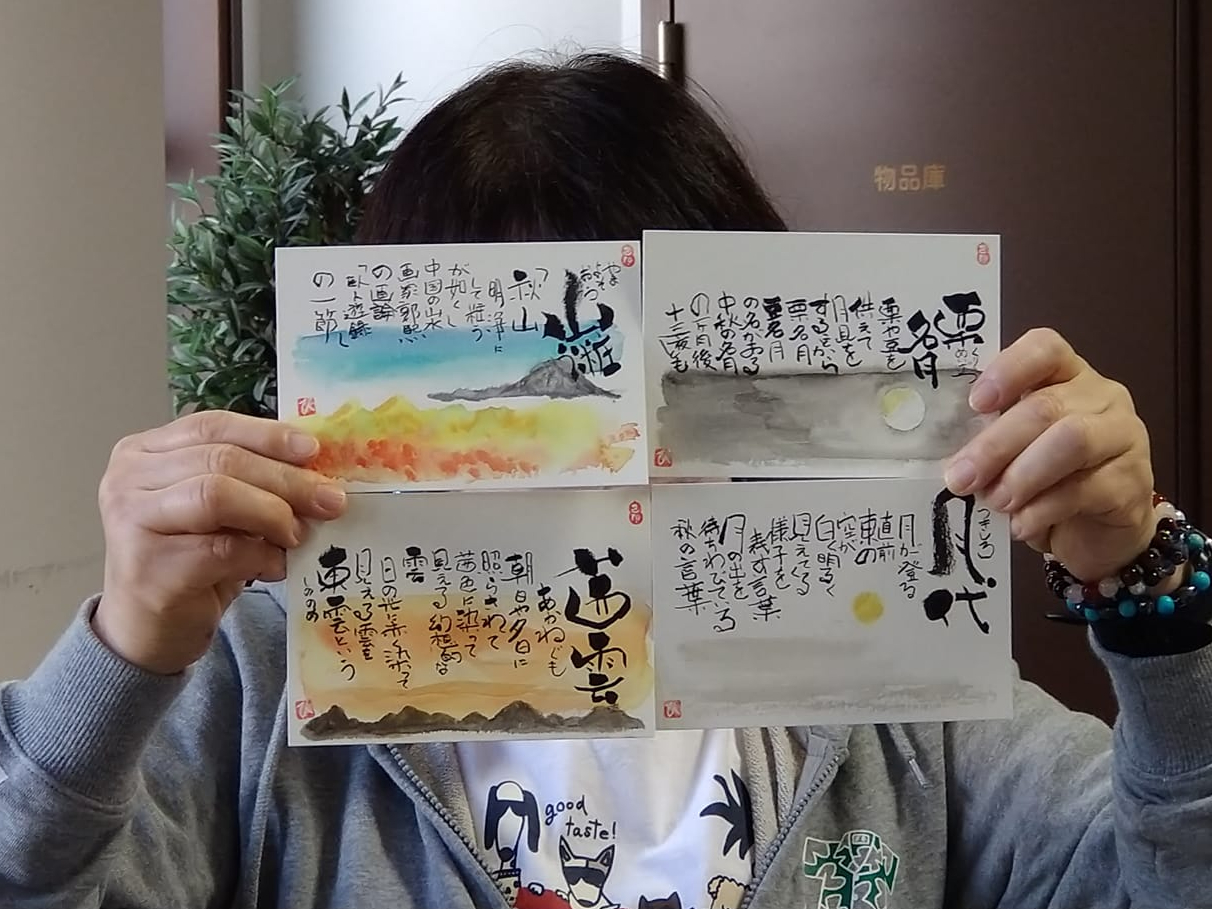 物品庫
山粧う
やま
よそ
おう
「秋山
明浄に
して粧う
が如くし
中国の山水
画家郭熙
の画論
「臥遊録」
の一節
ひ
栗名月
くり
めいげつ
栗や豆を
供えて
月見を
するから
栗名月
豆名月
の名がある
中秋の名月
の一ヶ月後
十三夜も
ひ
茜雲
あかねぐも
朝日や夕日に
照らされて
茜色に染って
見える幻想的な
雲
日の光に赤く染って
見える雲を
東雲という
しののめ
ひ
月代
つきしろ
月が登る
直前
東の
空が
白く明るく
見えてくる
様子を
表す言葉
月の出を
待ちわびている
秋の言葉
ひ
good
taste!